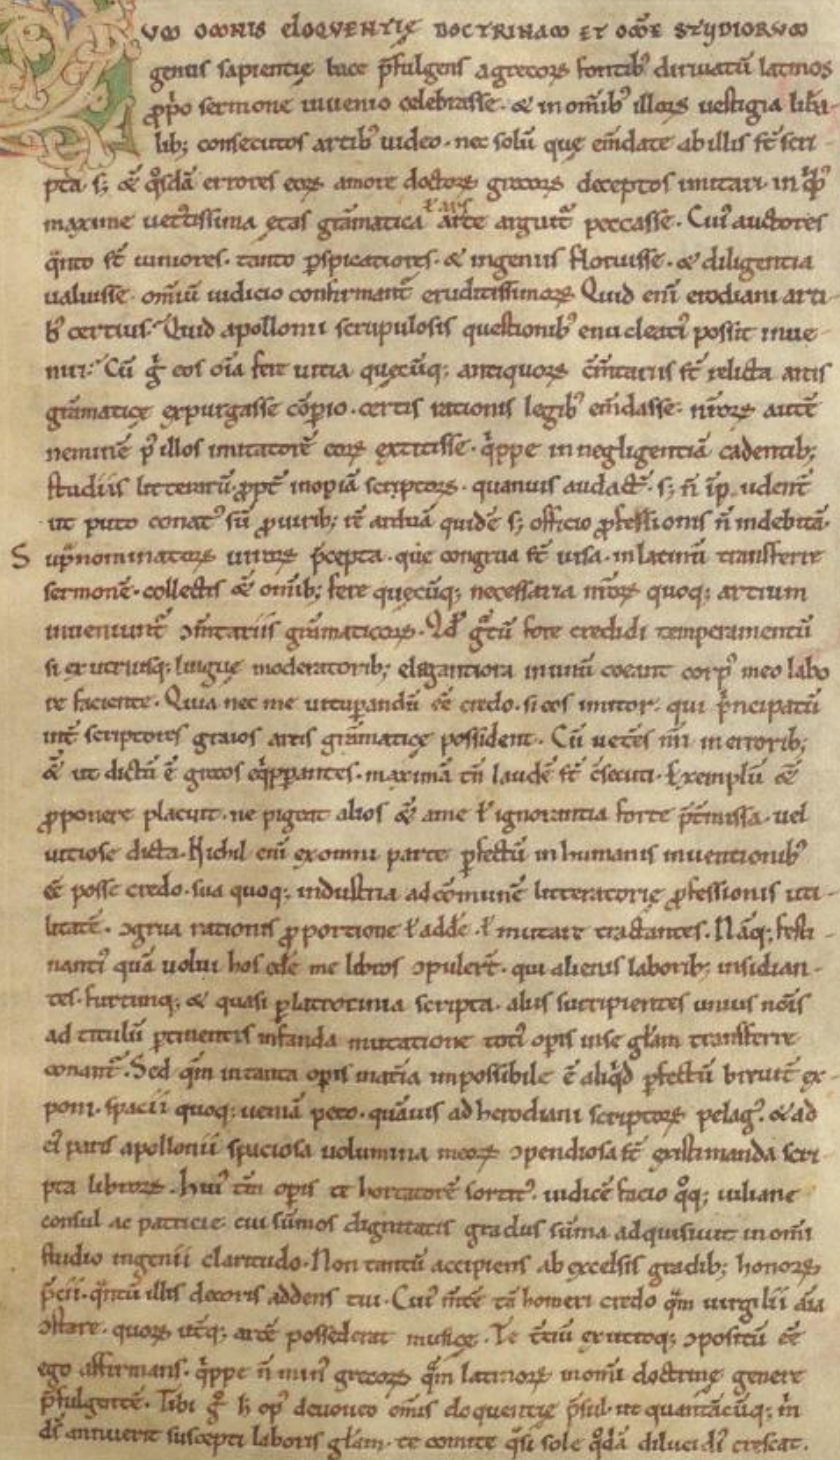 VVM OMNIS ELOQVENTIĘ DOCTRINAM ET OM̅E STVDIORVM
genus sapientię luce p̅fulgens a grecoꝝ fontib᾽ diriuatū latinos
ꝓprio sermone inuenio celebrasse· & in om̅ib᾽ illoꝝ uestigia libe-
lib; consecutos artib᾽ uideo· nec solū quę em̅date ab illis st̅ scri
pta· s; & q̊sdā errores eoꝝ amore doctoꝝ grecoꝝ deceptos imitari· in qⁱb᾽
maxime uetustissima ętas grāmatica ł ars arte arguit᷑ peccasse· Cui᾽ auctores
q̅nto st̅ iuniores· tanto ꝑspicatiores· & ingeniis floruisse· & diligentia
ualuisse om̅iū iudicio confirmant᷑ eruditissimoꝝ Quid eni᷑ erodiani arti-
b᾽ certius· Quid apollonii scrupulosis questionib᾽ enucleati᾽ possit inue-
niri· Cū g̊ eos oīa fere uitia quęcūq; antiquoꝝ c̅mtariis st̅ relicta artis
grāmaticę expurgasse cōperio· certis rationis legib᾽ em̅dasse· nr̅oꝝ aute̅
nemine̅ p᾽ illos imitatore̅ eoꝝ extitisse· qⁱppe in negligentiā cadentib;
studiis litteraꝝ ꝓpt᷑ inopiā scriptoꝝ· quanuis audact᷑· s; n̅ ip̅udent᷑
ut puto conat᾽ sū ꝓ uirib; re̅ arduā quide̅ s; officio ꝓfessionis n̅ indebitā·
S up̅nominatoꝝ uiroꝝ p̅cepta· que congrua st̅ uisa· in latinū transferre
sermone̅· collectis & omib; fere quęcūq; necessaria nr̅oꝝ quoq; artium
inueniunt᷑ ꝯm̅tariis grāmaticoꝝ· Qđ g̅tū fore credidi temperamentū
si ex utriusq; linguę moderatorib; elegantiora in unū coeant corp᾽ meo labo
re faciente· Quia nec me uituperandū e̅e credo· si eos imitor· qui pⁱncipatū
int᷑ scriptores graios artis grāmaticę possident· Cū uet̅es nr̅i in errorib;
& ut dictū e̅ grecos eqⁱꝑantes· maximā tn̅ laude̅ st̅ ꝯsecuti· Exemplū &
ꝓponere placuit· ne pigeat alios & a me ł ignorantia forte p̅t̅missa· uel
uitiose dicta· Nichil eni᷑ ex omni parte ꝑfectū in humanis inuentionib᾽
e̅e posse credo· sua quoq; industria ad cōmune̅ litteratorię ꝓfessionis uti-
litate̅· ꝯgrua rationis ꝓportione ł adde̅· ł mutare tractantes· Nāq; festi-
nanti᾽ quā uolui hos ede̅ me libros ꝯpuler̅t· qui alienis laborib; insidian-
tes· furtimq; & quasi ꝑ latrocinia scripta· aliis surripientes unius nois̅
ad titulū ꝑtinentis infanda mutatione toti᾽ opis̅ in se gl̅am transferre
conant᷑· Sed qm̅ in tanta opis̅ mat̅ia impossibile e̅ aliqⁱd ꝑfectū breuit᷑ ex-
poni· spacii quoq; ueniā peto· quāuis ad herodiani scriptoꝝ pelag᾽· & ad
ei᾽ patis̅ apollonii spaciosa uolumina meoꝝ ꝯpendiosa st̅ existimanda scri
pta libroꝝ· Hui᾽ tam̅ opis̅ te hortatore̅ sortit᾽· iudice̅ facio q̊q; iuliane
consul ac patricie· cui sūmos dignitatis gradus sūma adquisiuit in omi̅
studio ingenii claritudo· Non tantū accipiens ab excelsis gradib; honoꝝ
p̅cii· q̅ntū illis decoris addens tui· Cui᾽ m̅te̅ tā homeri credo qm̅ uirgilii aīa
ꝯstare· quoꝝ ut̅q; arce̅ possederat musicę· Te t̅tiū ex utroq; ꝯpositū e̅e
ego affirmans· qⁱppe n̅ min᾽ grecoꝝ qm̅ latinoꝝ in omi̅ doctrinę genere
p̅fulgente̅· Tibi g̊ h̅ op᾽ deuoueo om̅is eloquentię p̅sul· ut quantācūq; m̅
ds̅ annuerit suscepti laboris gl̅am· te comite q̅si sole q̊dā dilucidi᾽ crescat·